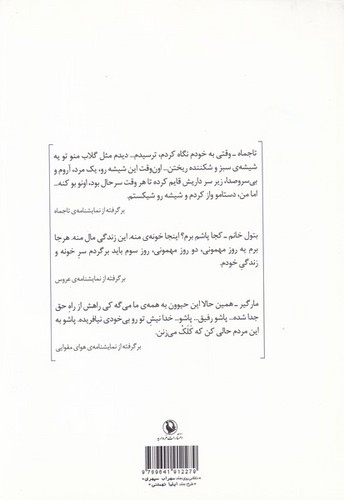 تاجماه ـ وقتی به خودم نگاه کردم، ترسیدم.. دیدم مثل گلاب منو تو یه
شیشه‌ی سبز و شکننده ریختن.. اون‌وقت این شیشه رو، یک مرد، آروم و
بی‌سروصدا، زیر سر داریش قایم کرده تا هر وقت سرحال بود، اونو بو کنه...
اما من، دستامو واز کردم و شیشه رو شیکستم.
برگرفته از نمایشنامه‌ی تاجماه
بتول خانم ـ کجا پاشم برم؟ اینجا خونه‌ی منه. این زندگی مال منه. هرجا
برم یه روز مهمونی، دو روز مهمونی، روز سوم باید برگردم سر خونه و
زندگی خودم.
برگرفته از نمایشنامه‌ی عروس
مارگیر ـ همین حالا این حیوون به همه‌ی ما می‌گه کی راهش از راهِ حق
جدا شده.. پاشو رفیق.. پاشو... خدا نیشِ تو رو بی‌خودی نیافریده. پاشو به
این مردم حالی کن که کَلَک می‌زنن.
برگرفته از نمایشنامه‌ی هوای مقوایی
انتشارات مروارید
9 789641 912279